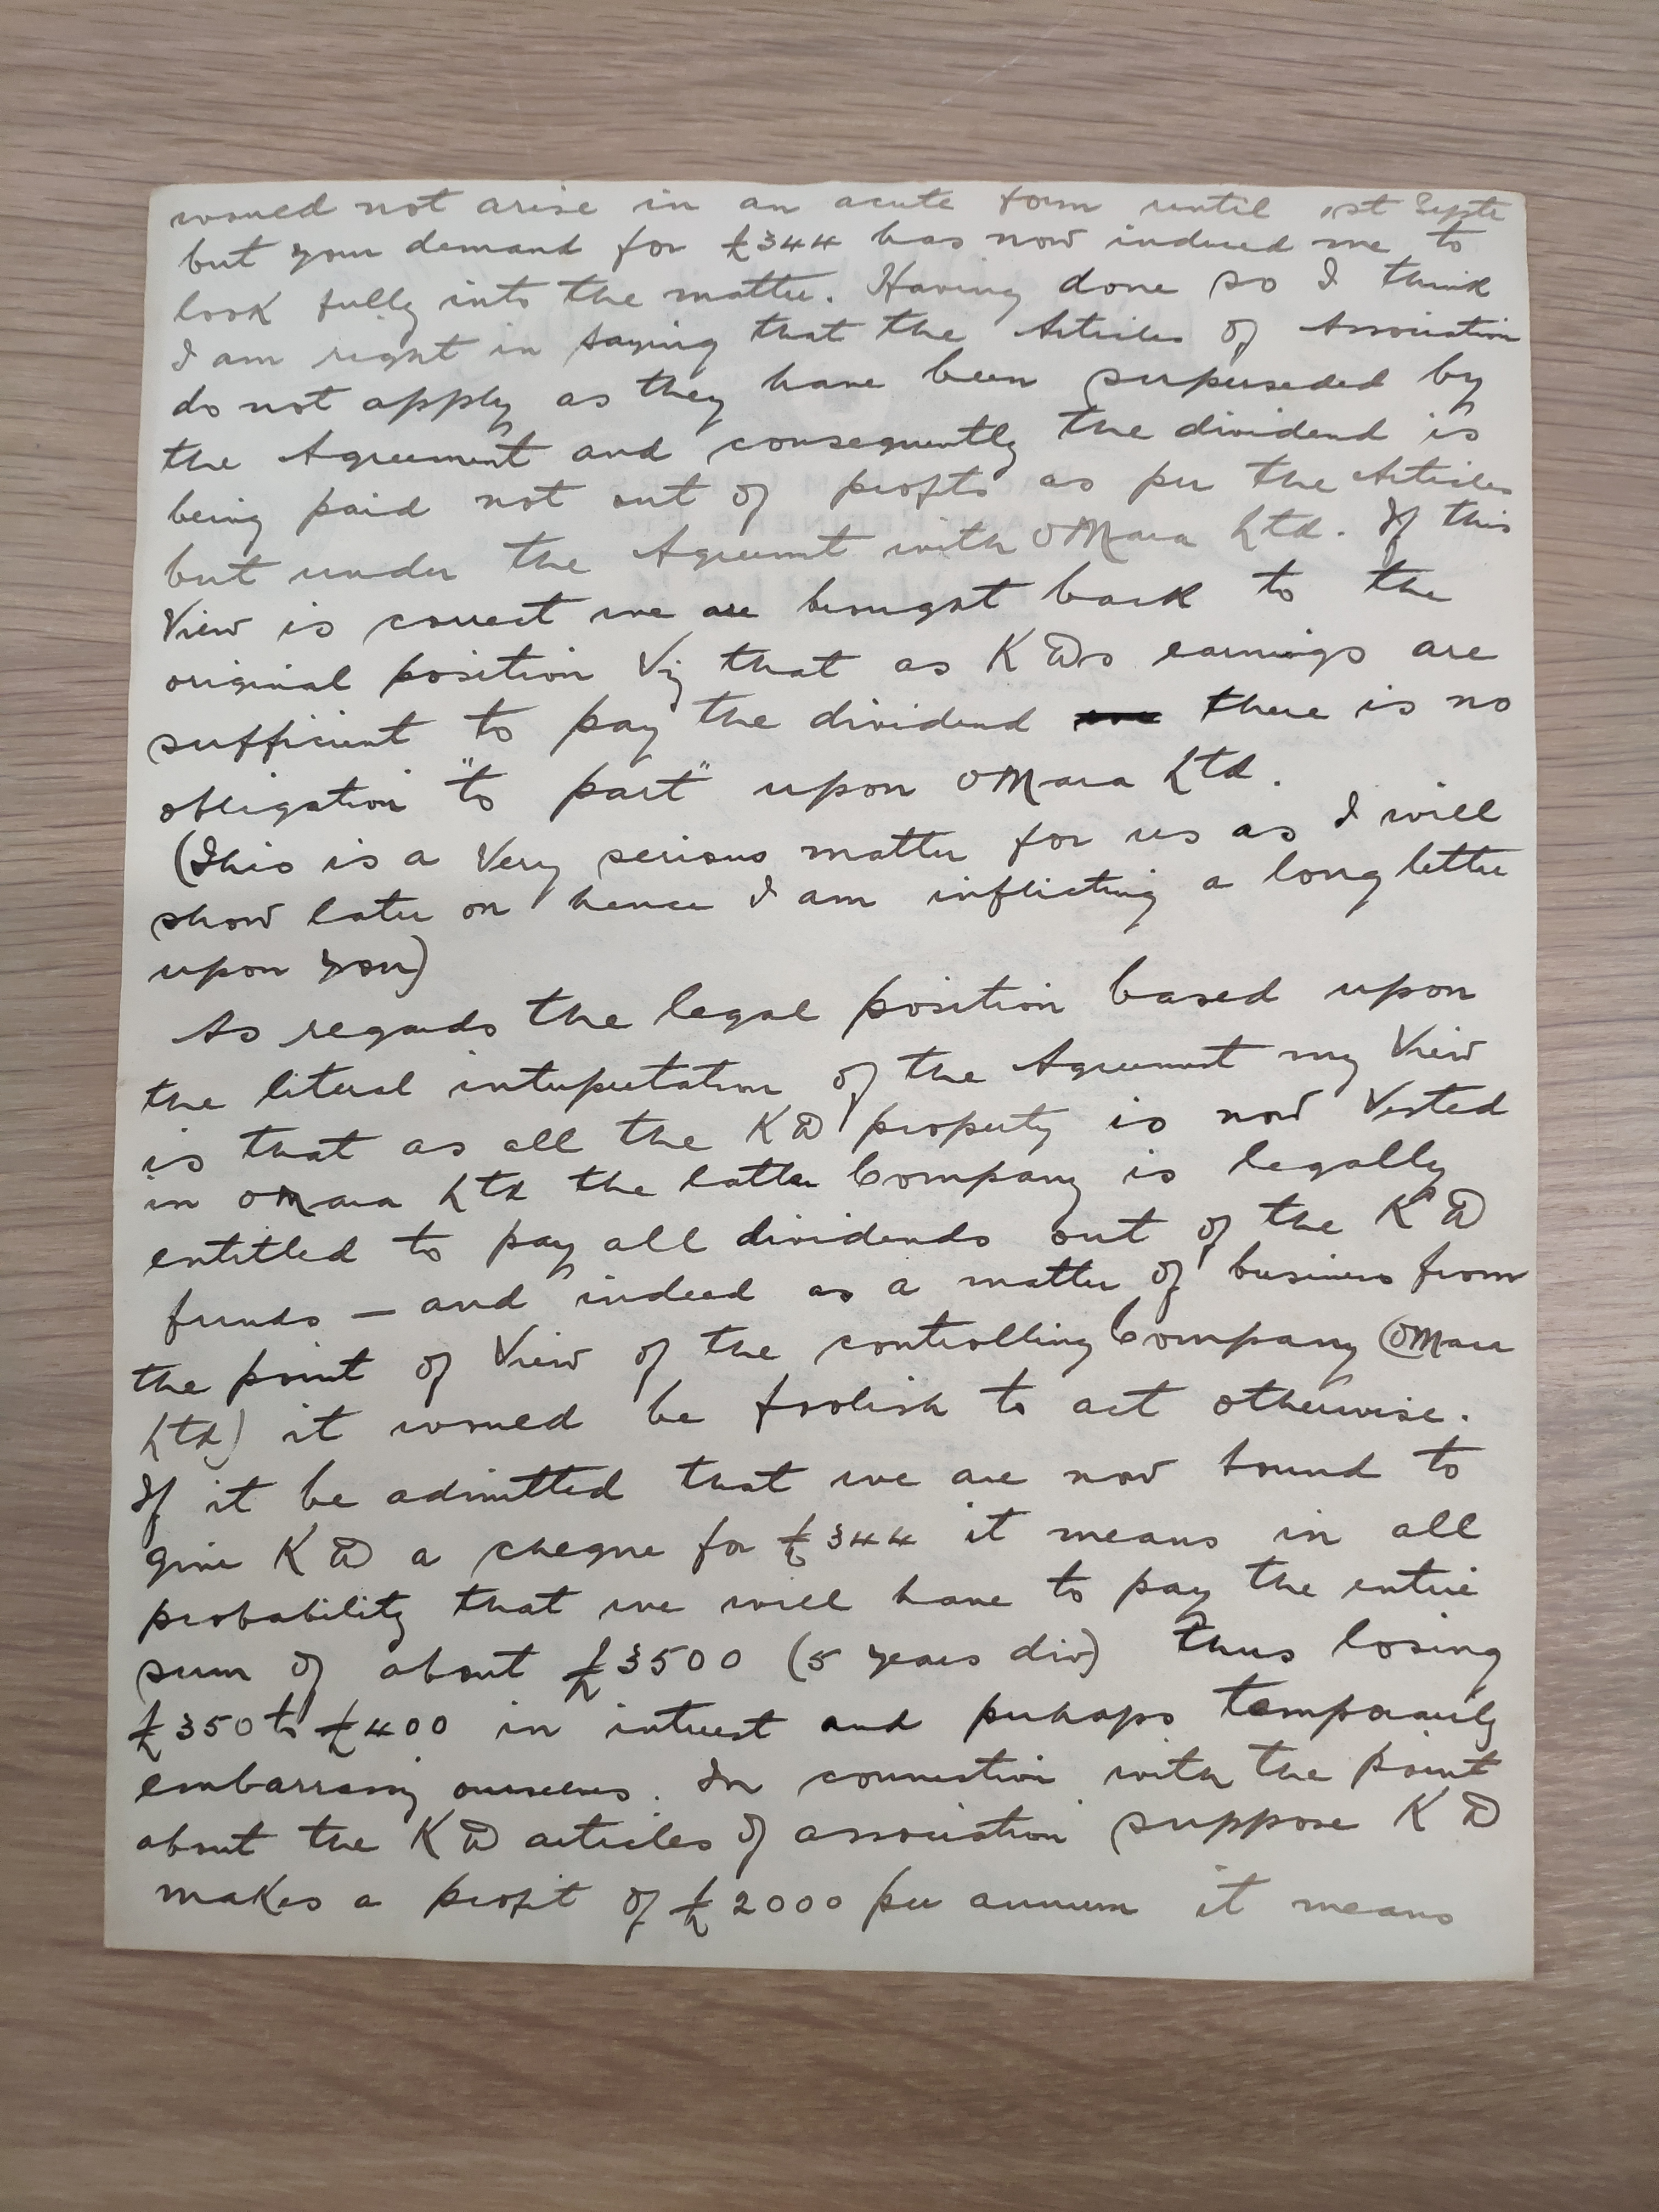 would not arise in an acute form until 1st Septr
but your demand for £344 has now induced me to
look fully into the matter. Having done so I think
I am right in saying that the Articles of Association
do not apply as they have been superseded by
the Agreement and consequently the dividend is
being paid not out of profits as per the Articles
but under the Agreemt with OMara Ltd. If this
View is correct we are brought back to the
original position Viz that as K D's earnings are
sufficient to pay the dividend there is no
obligation "to part" upon OMara Ltd.
(This is a Very serious matter for us as I will
show later on hence I am inflicting a long letter
upon you)
As regards the legal position based upon
the literal interpretation of the Agreement my View
is that as all the K D property is now Vested
in OMara Ltd the latter Company is legally
entitled to pay all dividends out of the K D
funds — and indeed as a matter of business from
the point of View of the controlling Company (OMara
Ltd) it would be foolish to act otherwise.
If it be admitted that we are now bound to
give K D a cheque for £344 it means in all
probability that we will have to pay the entire
sum of about £3500 (5 years div) thus losing
£350 to £400 in interest and perhaps temporarily
embarrassing ourselves. In connection with the point
about the K D articles of association suppose K D
makes a profit of £2000 per annum it means